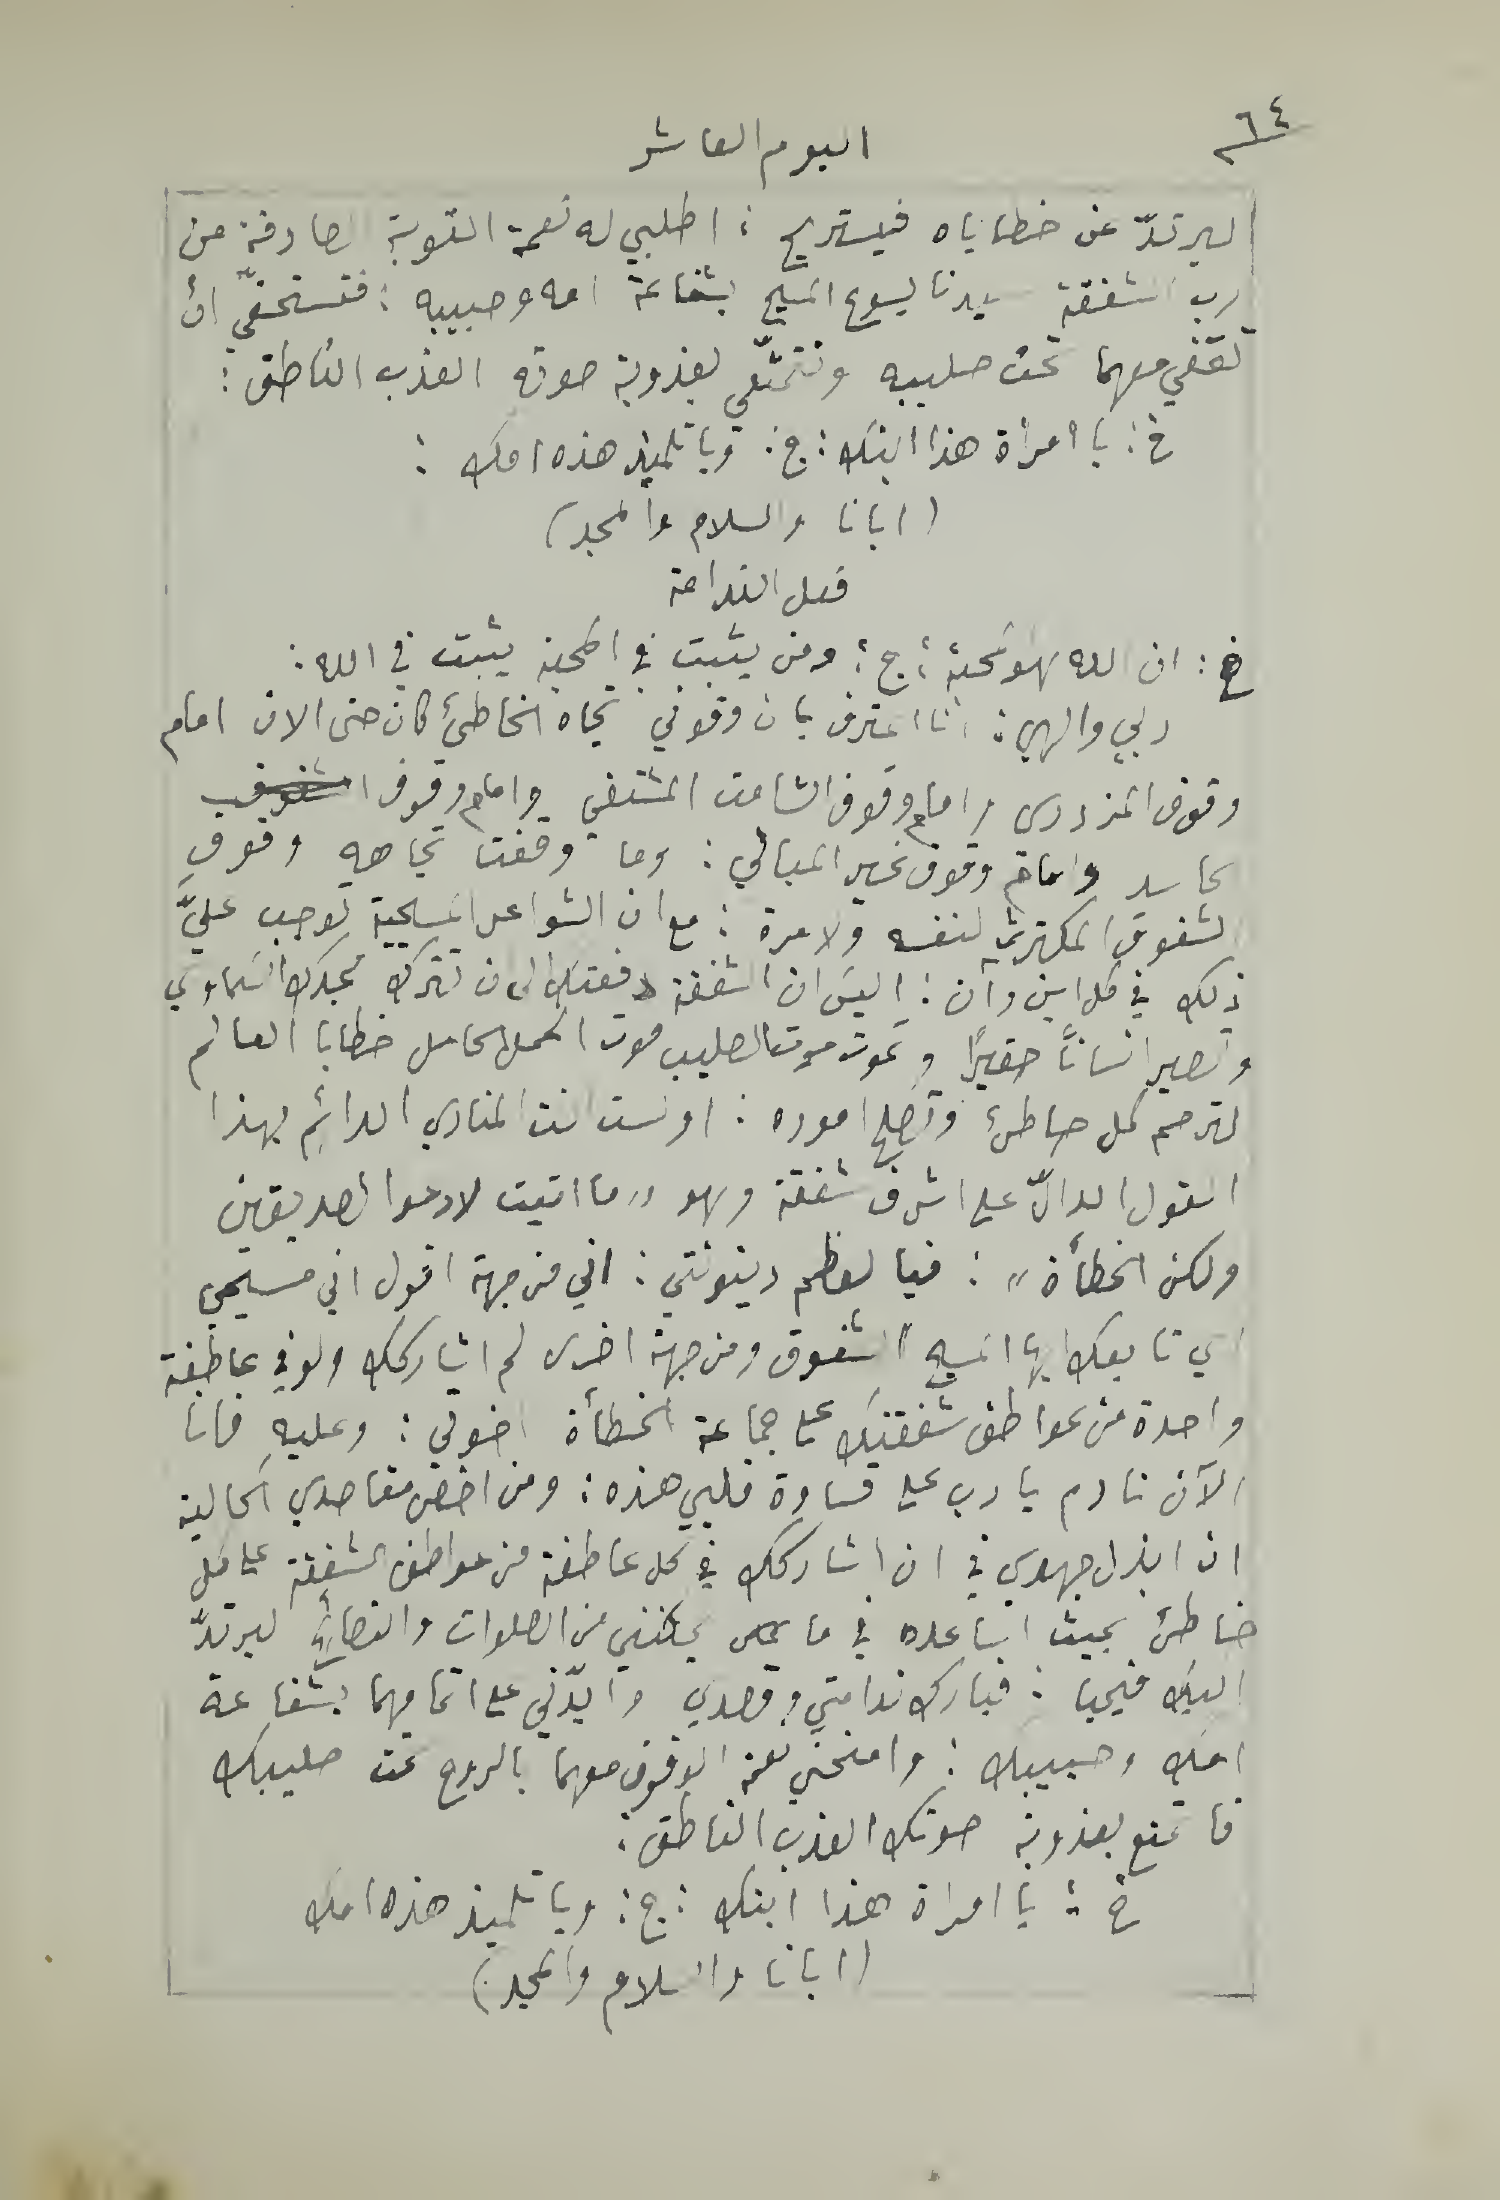 ٦٤
اليوم العاشر
ليرتدّ عن خطاياه فيستريح : اطلبي له نعمة التوبة الصادقة من
رب الشفقة سيدنا يسوع المسيح بشفاعة امه وحبيبه : فتستحقّي ان
تقفي معهما تحت صليبه وتتمتّعي بعذوبة صوته العذب الناطق :
خ : يا امرأة هذا ابنك : ج : ويا تلميذ هذه امك :
(ابانا والسلام والمجد)
فعل الندامة
خ : ان الله هو محبة : ج : ومن يثبت في المحبة يثبت في الله :
ربي والهي : انا اعترف بان وقوفي تجاه الخاطئ كان حتى الان امام
وقوف المزدري واما وقوف الشامت المشتفي واما وقوف
حاسد واما وقوف غير المبالي : وما وقفت تجاهه وقوف
الشفوق المكترث لنفسه ولا مرة : مع ان الشواعر المسيحية توجب عليَّ
ذلك في كل اين وآن : اليس ان الشفقة دفعتك الى ان تترك مجدك السماوي
وتصير انساناً حقيرًا وتموت موت الصليب موت الحمل الحامل خطايا العالم
لترحم كل خاطئ وتصلح اموره : اولست انت المنادي الدائم بهذا
القول الدالّ على اشرف شفقة وهو "ما اتيت لادعوا لصديقين
ولكن الخطأة" : فيا لعظم دينونتي : اني من جهة اقول اني مسيحي
اي تابعك ايها المسيح الشفوق ومن جهة اخرى لم اشاركك ولو في عاطفة
واحدة من عواطف شفقتك على جماعة الخطأة اخوتي : وعليه فانا
الآن نادم يا رب على قساوة قلبي هذه : ومن اخص مقاصدي الحالية
ان ابذل جهدي في ان اشاركك في كل عاطفة من عواطف الشفقة على كل
خاطئ بحيث اساعده في ما يمكنني من الصلوات والنصائح ليرتدّ
اليك فيحيا : فبارك ندامتي وقصدي وايدّني على اتمامهما بشفاعة
امك وحبيبك : وامنحني نعمة الوقوف معهما بالروح تحت صليبك
فاتمتع بعذوبة صوتك العذب الناطق :
خ : يا امراة هذا ابنك : ج : ويا تلميذ هذه امك
(ابانا والسلام والمجد)